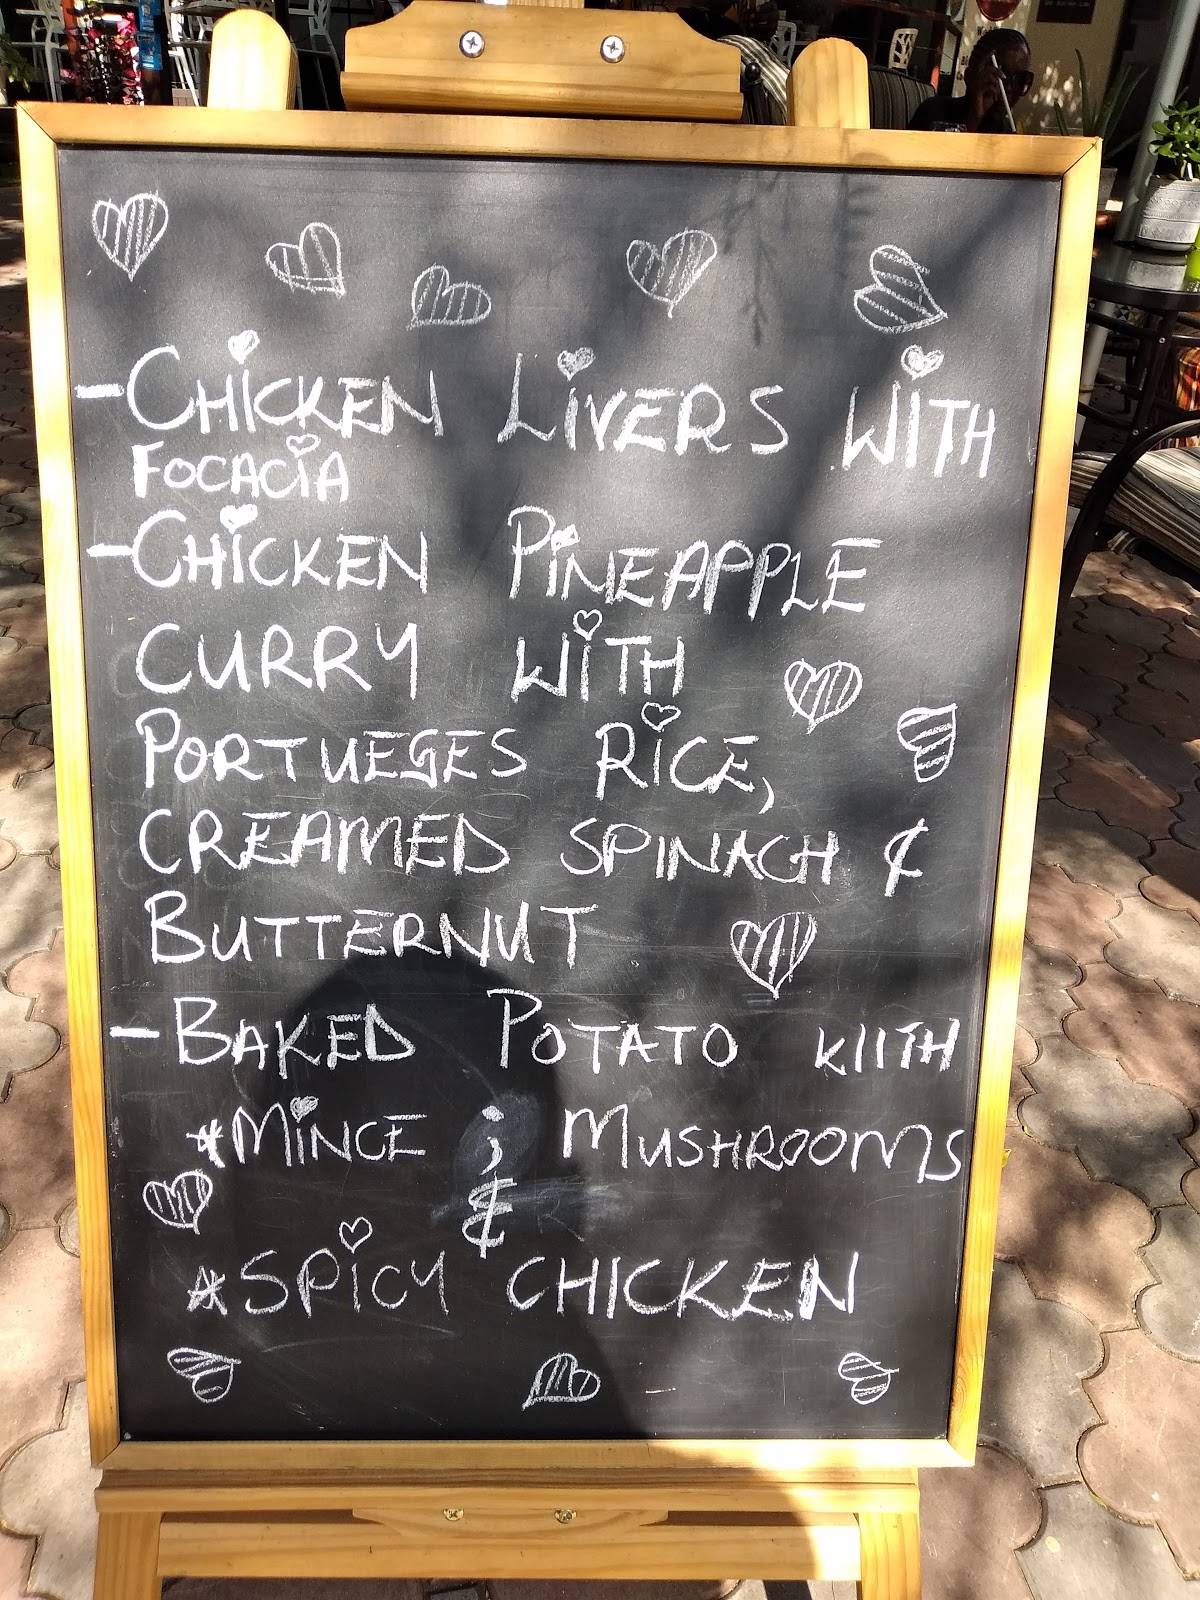 -CHICKEN LIVERS WITH
FOCACIA
-CHICKEN PINEAPPLE
CURRY WITH
PORTUEGES RICE,
CREAMED SPINACH &
BUTTERNUT
-BAKED POTATO WITH
*MINCE ; MUSHROOMS
&
*SPICY CHICKEN